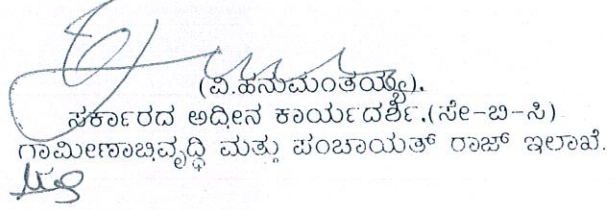 (ವಿ.ಹನುಮಂತಯ್ಯ).
ಸರ್ಕಾರದ ಅಧೀನ ಕಾರ್ಯದರ್ಶಿ.(ಸೇ-ಬಿ-ಸಿ)
ಗಾಮೀಣಾಬಿವೃದ್ಧಿ ಮತ್ತು ಪಂಚಾಯತ್ ರಾಜ್ ಇಲಾಖೆ.